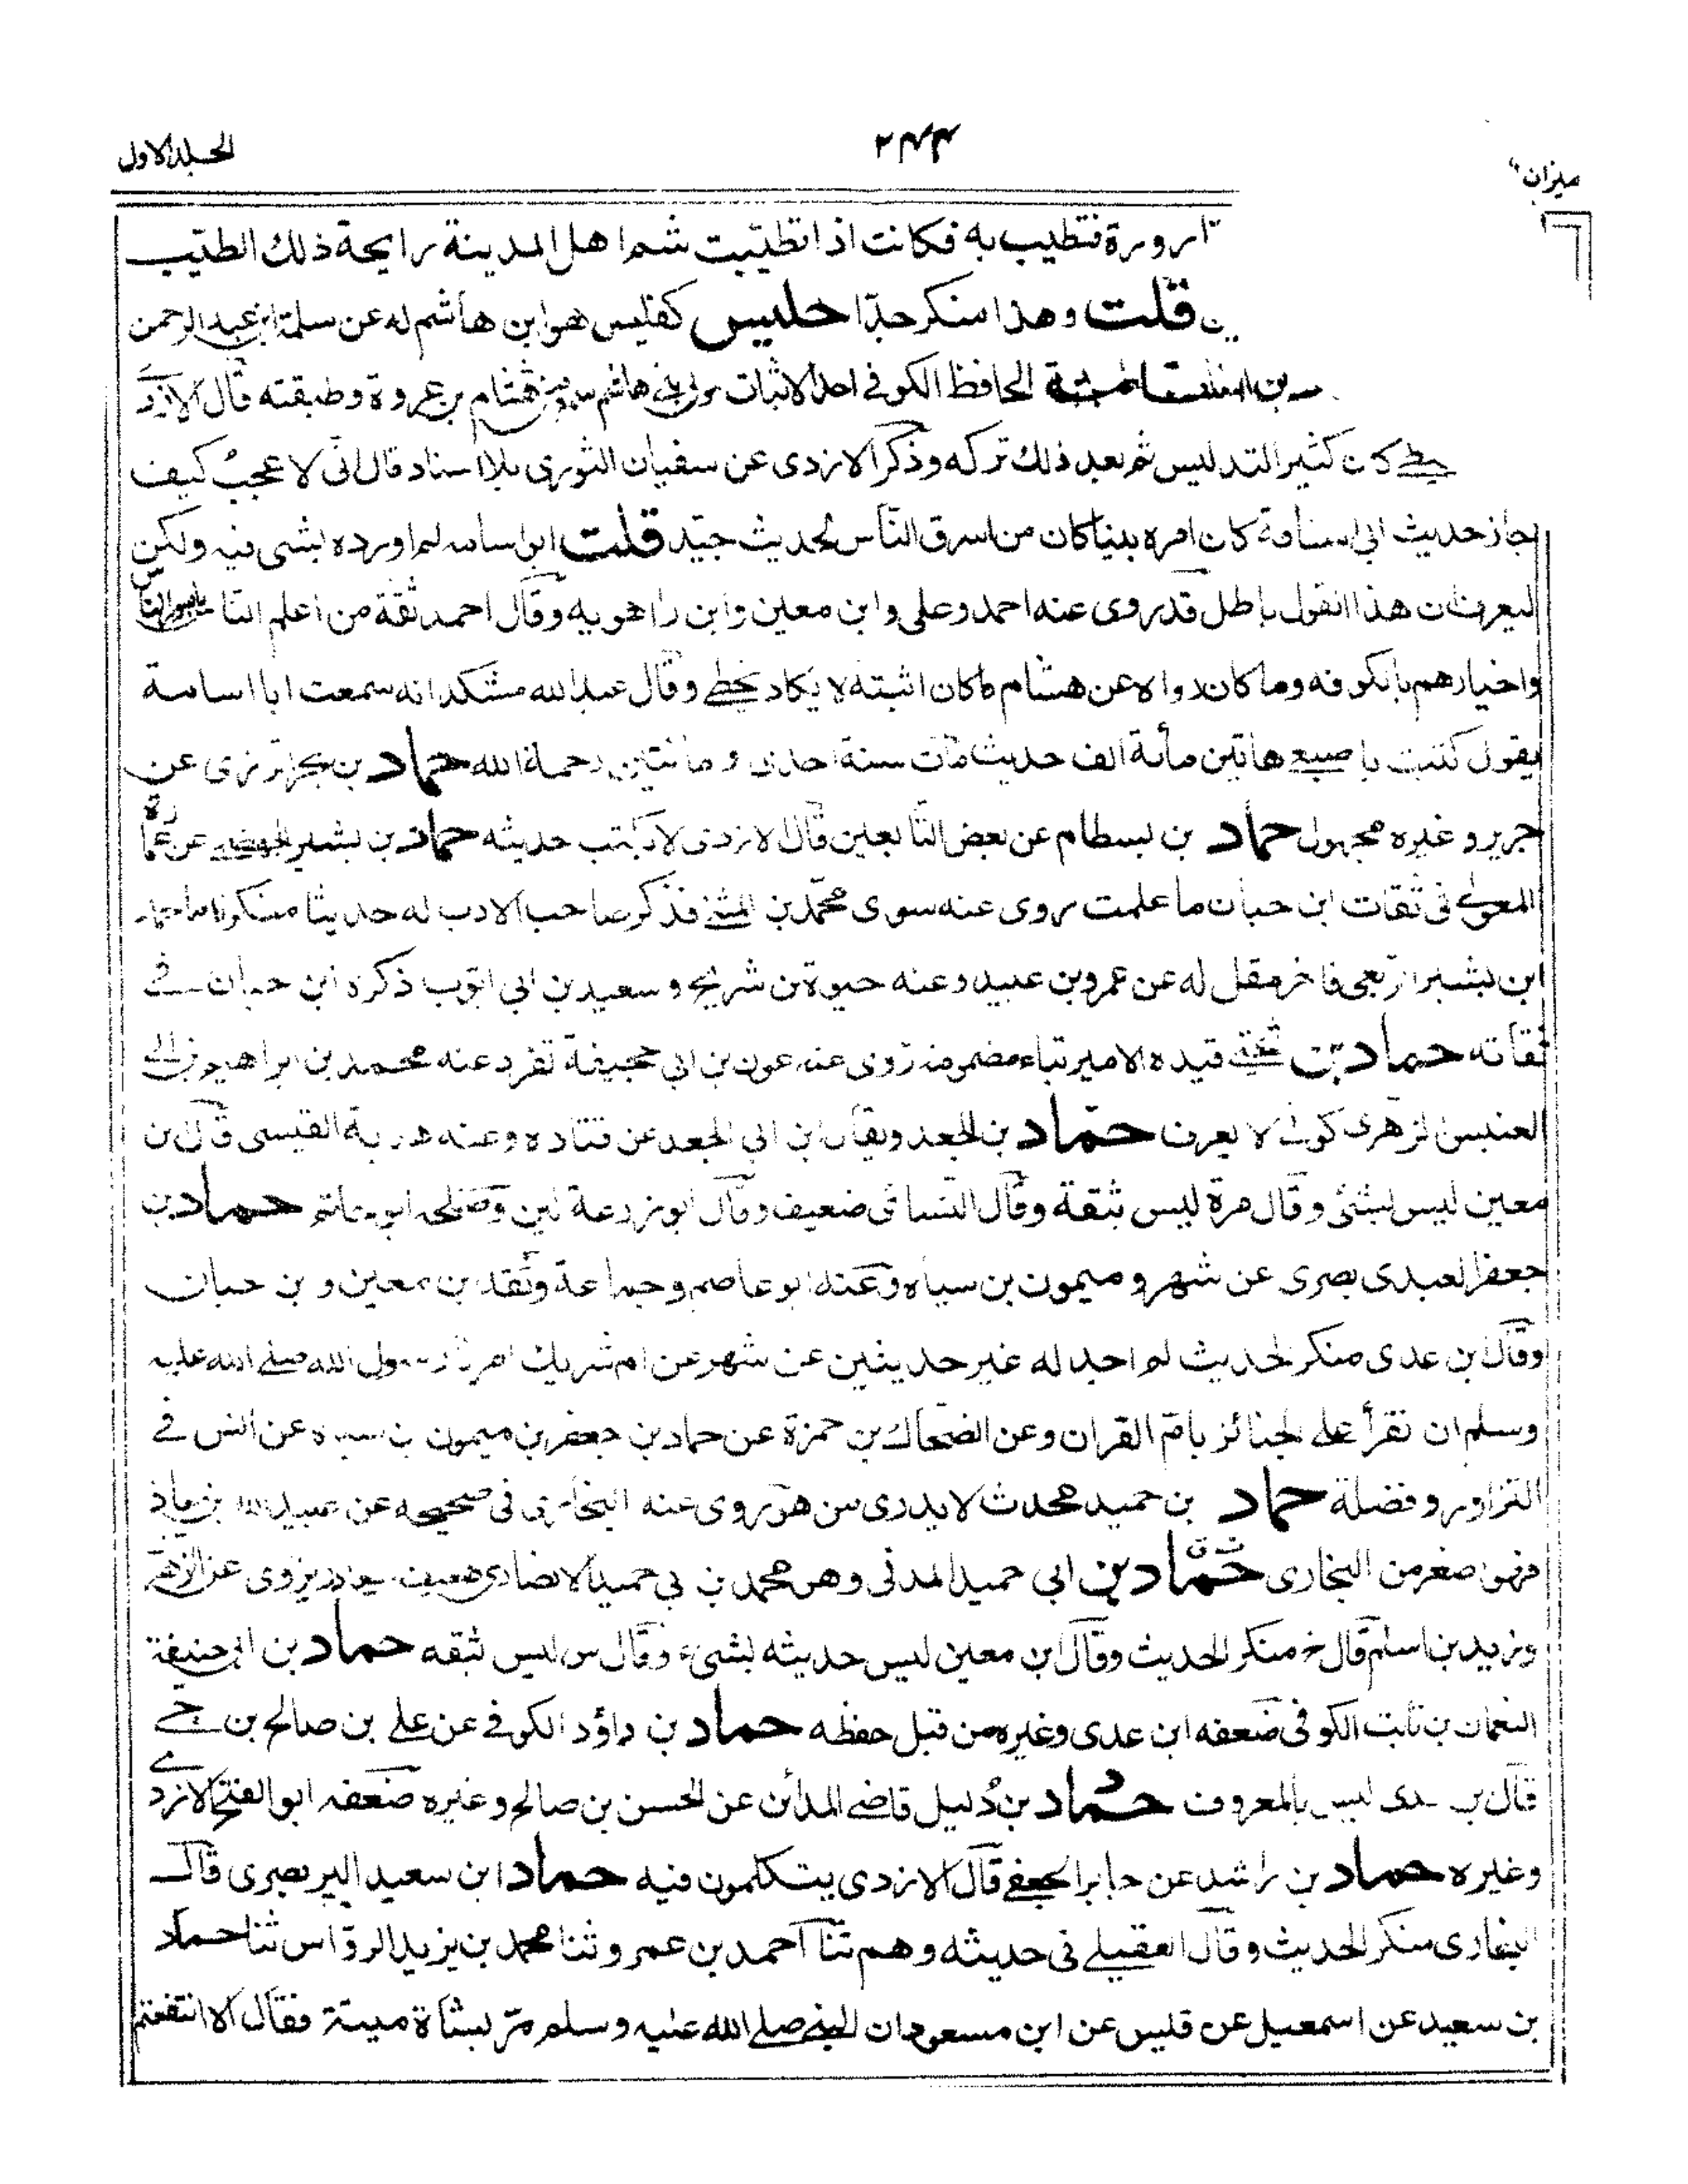 ميزان
٢٤٤
الجلد الاول
فتطيب به فكانت اذا تطيبت شم اهل المدينة رايحة ذلك الطيب
قلت وهذا منكر جدّا حلبس كفليس هو ابن هاشم له عن سلمة ابن عبد الرحمن
الحافظ الكوفى احد الاثبات مولى بنى هاشم هشام بن عروة وطبقته قال الازدى
كان كثير التدليس ثم بعد ذلك تركه وذكر الازدى عن سفيان الثورى بلا اسناد قال انّى لا عجب كيف
جاز حديث ابى اسامة كان امره بينا كان من اسرق النّاس لحديث جيّد قلت ابو اسامه لم اورده لشى فيه ولكن
ليعرف ان هذا القول باطل قد روى عنه احمد وعلى وابن معين وابن راهويه وقال احمد ثقة من اعلم النّاس بامور النّاس
واخبارهم بالكوفه وما كان رواه عن هشام ما كان اثبته لا يكاد يخطى وقال عبد الله مشكدانه سمعت ابا اسامة
يقول كتبت باصبع هاتين مأئة الف حديث مات سنة احدى ومائتين رحمة الله حماد بن عن
جرير وغيره مجهول حماد بن بسطام عن بعض التّابعين قال الازدى لا يكتب حديثه حماد بن بشير الجهضمى عن عمارة
المعولى فى ثقات ابن حبان ما علمت روى عنه سوى محمّد بن المثنى فذكر صاحب الادب له حديثا منكرا حماد
ابن بشير الربعى فاخر مقل له عن عمرو بن عبيد وعنه حيوة بن شريح وسعيد بن ابى ايوب ذكره ابن حبان فى
ثقاته حماد بن تحيى قيده الامير بتاء مضمومة روى عنه عون بن ابى جحيفة تفرد عنه محمد بن ابراهيم بن
العنبس الزهرى كوفى لا يعرف حمّاد بن الجعد ويقال ابن ابى الجعد عن قتاده وعنه هدبة القيسى قال ابن
معين ليس بشئ وقال مرة ليس بثقة وقال النّسائى ضعيف وقال ابو زرعة لين وصلحه ابو حاتم حماد بن
جعفر العبدى بصرى عن شهر وميمون بن سياه وعنه ابو عاصم وجماعة وثقه ابن معين وبن حبان
وقال ابن عدى منكر الحديث لم اجد له غير حديثين عن شهر عن ام شريك امرنا رسول الله صلى الله عليه
وسلم ان نقرأ على الجنائز بام القران وعن الضحاك بن حمزة عن حماد بن جعفر بن ميمون بن سياه عن انس فى
التزاور وفضله حماد بن حميد محدث لا يدرى من هو روى عنه البخارى فى صحيحه عن عبيد الله بن معاذ
فهو اصغر من البخارى حمّاد بن ابى حميد المدنى وهو محمد بن ابى حميد الانصارى ضعيف يروى عن الزهرى
وزيد بن اسلم قال خ منكر الحديث وقال ابن معين ليس حديثه بشىء وقال س ليس بثقه حماد بن ابى حنيفة
النعمان بن ثابت الكوفى ضعفه ابن عدى وغيره من قبل حفظه حماد بن داؤد الكوفى عن على بن صالح بن حى
قال بن عدى ليس بالمعروف حمّاد بن دُليل قاضى المدائن عن الحسن بن صالح وغيره ضعفه ابو الفتح الازدى
وغيره حماد بن راشد عن جابر الجعفى قال الازدى يتكلمون فيه حماد ابن سعيد البر بصرى قال
البخارى منكر الحديث وقال العقيلى فى حديثه وهم ثنا احمد بن عمرو ثنا محمد بن يزيد الروّاس ثنا حماد
بن سعيد عن اسمعيل عن قيس عن ابن مسعود ان النبى صلى الله عليه وسلم مرّ بشاة ميتة فقال الا انتفعتم